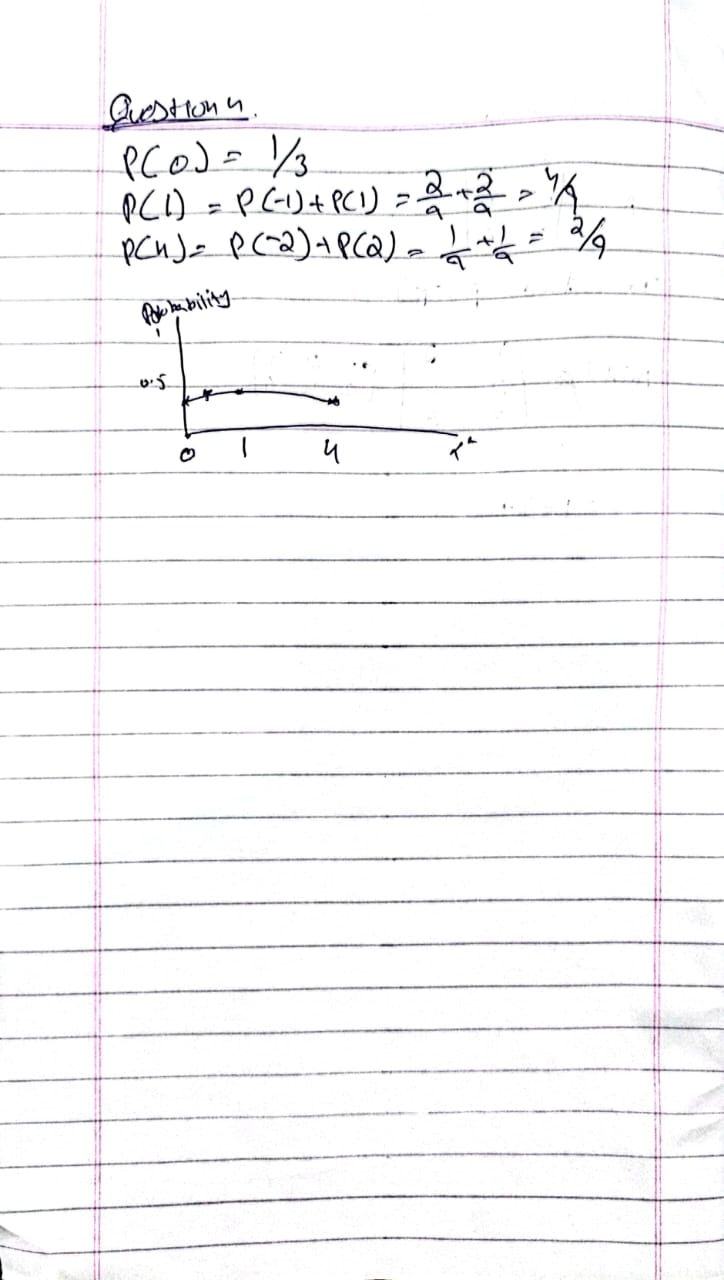 Question 4.
P(0) = 1/3
P(1) = P(-1) + P(1) = 2/9 + 2/9 = 4/9
P(4) = P(-2) + P(2) = 1/9 + 1/9 = 2/9
Probability
1
0.5
0 1 4